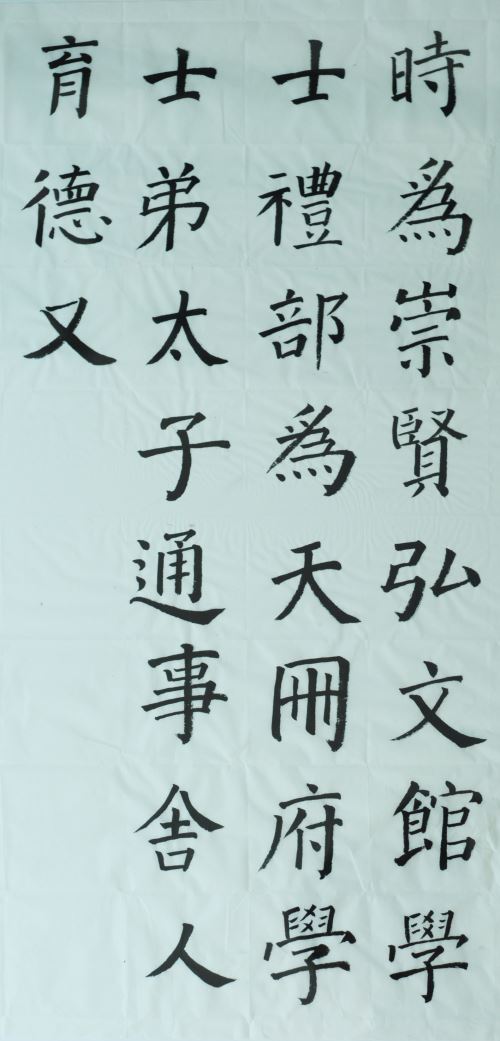 時為崇賢弘文館學
士禮部為天冊府學
士弟太子通事舎人
育德又